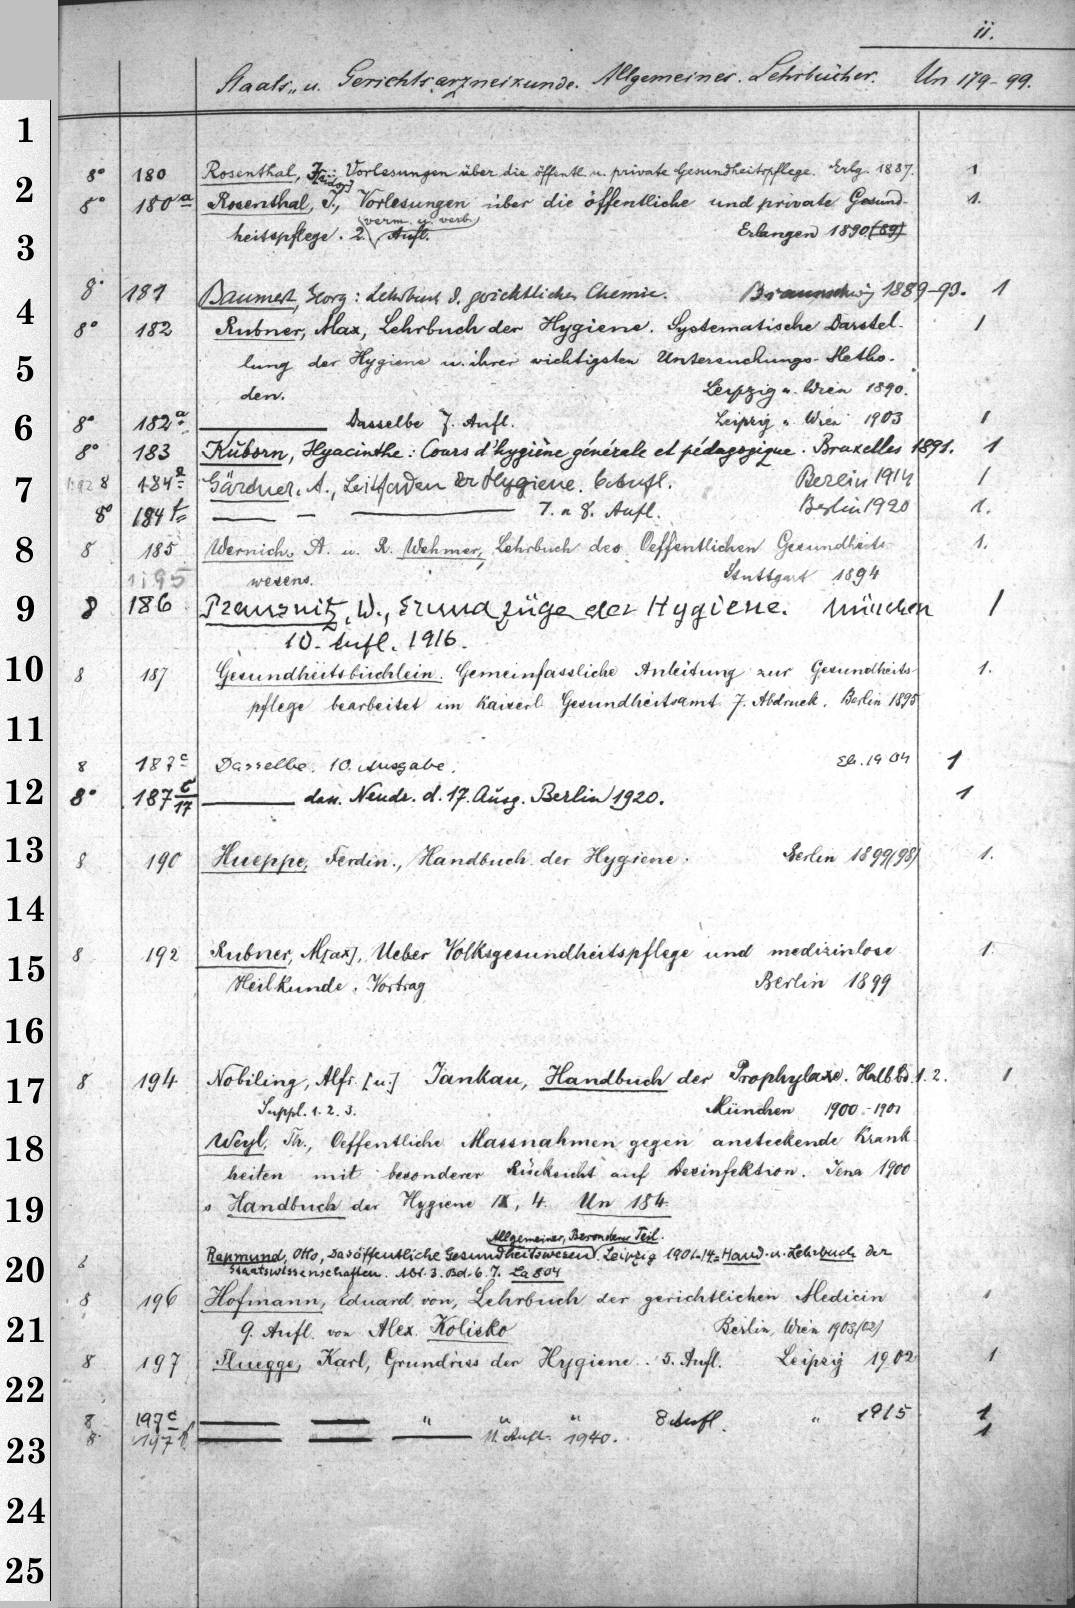 ii.
Staats- u. Gerichtsarzneikunde. Allgemeines. Lehrbücher. Un 179-99.
1
8° 180 Rosenthal, Vorlesungen über die öffentl. u. private Gesundheitspflege. Erlg. 1887. 1
2
8° 180a Rosenthal, J., Vorlesungen über die öffentliche und private Gesund- 1.
verm. u. verb.
3
heitspflege. 2. Aufl. Erlangen 1890 (89)
8° 181 Baumert, Georg: Lehrbuch d. gerichtlichen Chemie. Braunschweig 1889-93. 1
4
8° 182 Rubner, Max, Lehrbuch der Hygiene. Systematische Darstel- 1
lung der Hygiene u. ihrer wichtigsten Untersuchungs-Metho-
5
den. Leipzig u. Wien 1890.
6
8° 182a Dasselbe 7. Aufl. Leipzig u. Wien 1903 1
8° 183 Kuborn, Hyacinthe: Cours d'hygiène générale et pédagogique. Bruxelles 1891. 1
7
8 184 Gärdner, A., Leitfaden der Hygiene. 6. Aufl. Berlin 1914 1
8° 184 — — — 7. u 8. Aufl. Berlin 1920 1.
8
8 185 Wernich, A. u. R. Wehmer, Lehrbuch des Oeffentlichen Gesundheits- 1.
1195 wesens. Stuttgart 1894
9
8 186 Prausnitz, W., Grundzüge der Hygiene. München 1
10. Aufl. 1916.
10
8 187 Gesundheitsbüchlein. Gemeinfassliche Anleitung zur Gesundheits- 1.
pflege bearbeitet im Kaiserl. Gesundheitsamt 7. Abdruck. Berlin 1895
11
8 187c Dasselbe. 10. Ausgabe. Eb. 1904 1
12
8° 187c/17 — dass. Neudr. d. 17. Ausg. Berlin 1920. 1
13
8 190 Hueppe, Ferdin., Handbuch der Hygiene. Berlin 1899(98) 1.
14
8 192 Rubner, M[ax], Ueber Volksgesundheitspflege und medizinlose 1.
15
Heilkunde. Vortrag Berlin 1899
16
17
8 194 Nobiling, Alfr. [u.] Jankau, Handbuch der Prophylaxe. Halbbd. 1. 2. 1
Suppl. 1. 2. 3. München 1900-1901
18
Weyl, Th., Oeffentliche Massnahmen gegen ansteckende Krank
heiten mit besonderer Rücksicht auf Desinfektion. Jena 1900
19
s Handbuch der Hygiene IX, 4. Un 184
Allgemeiner, Besonderer Teil.
20
Rapmund, Otto, Das öffentliche Gesundheitswesen. Leipzig 1901-14 = Hand- u. Lehrbuch der
Staatswissenschaften. Abt. 3. Bd. 6. 7. La 804
8 196 Hofmann, Eduard von, Lehrbuch der gerichtlichen Medicin 1
21
9. Aufl. von Alex. Kolisko Berlin, Wien 1903/(02)
8 197 Fluegge, Karl, Grundriss der Hygiene. 5. Aufl. Leipzig 1902 1
22
8 197c — — " " " 8 Aufl. " 1915 1
23
8 197 — — — 11. Aufl. 1940. 1
24
25